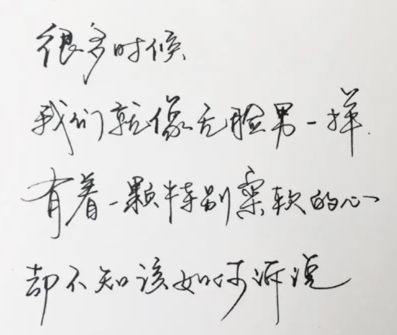 很多时候
我们就像无脸男一样.
有着一颗特别柔软的心
却不知该如何诉说